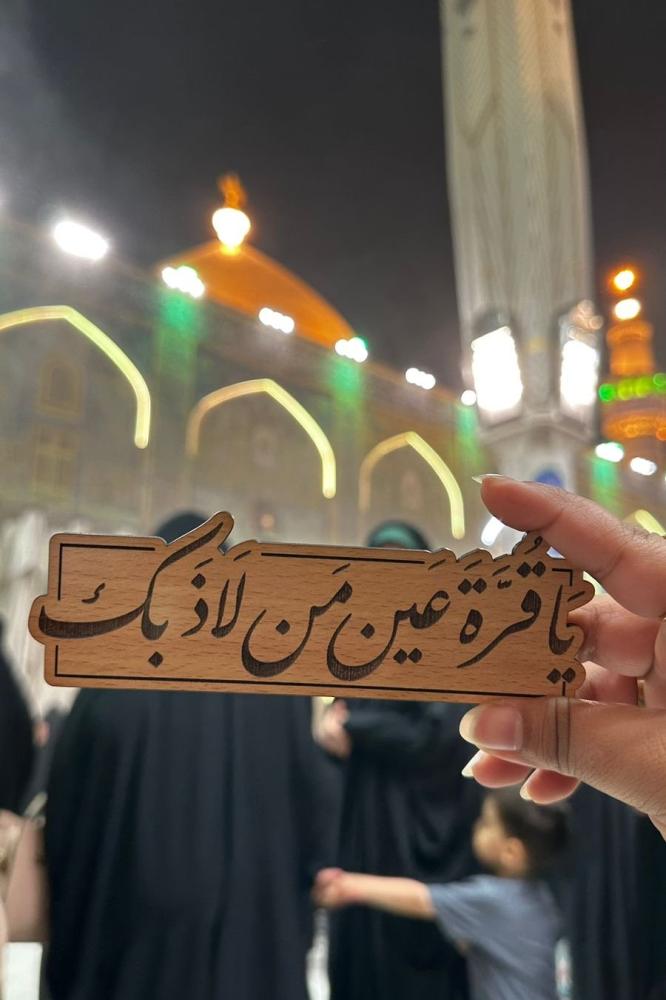 يَا قُرَّةَ عَينِ مَن لَاذَ بِكَ